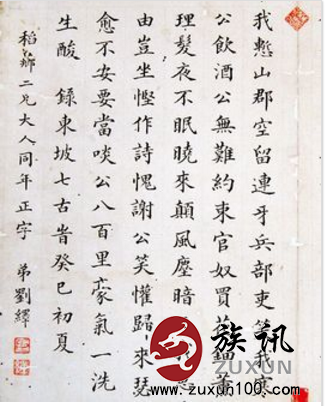 我慙山郡空留連牙兵部吏笑我寒
公飲酒公無難約束官奴買薰
理髮夜不眠曉來顛風塵暗
由豈坐慳作詩愧謝公笑懽歸來瑟
愈不安要當啖公八百里豪氣一洗
生酸 錄東坡七古首癸巳初夏
稻鄉二兄大人同年正字 弟劉繹
族讯
www.zuxun100.com